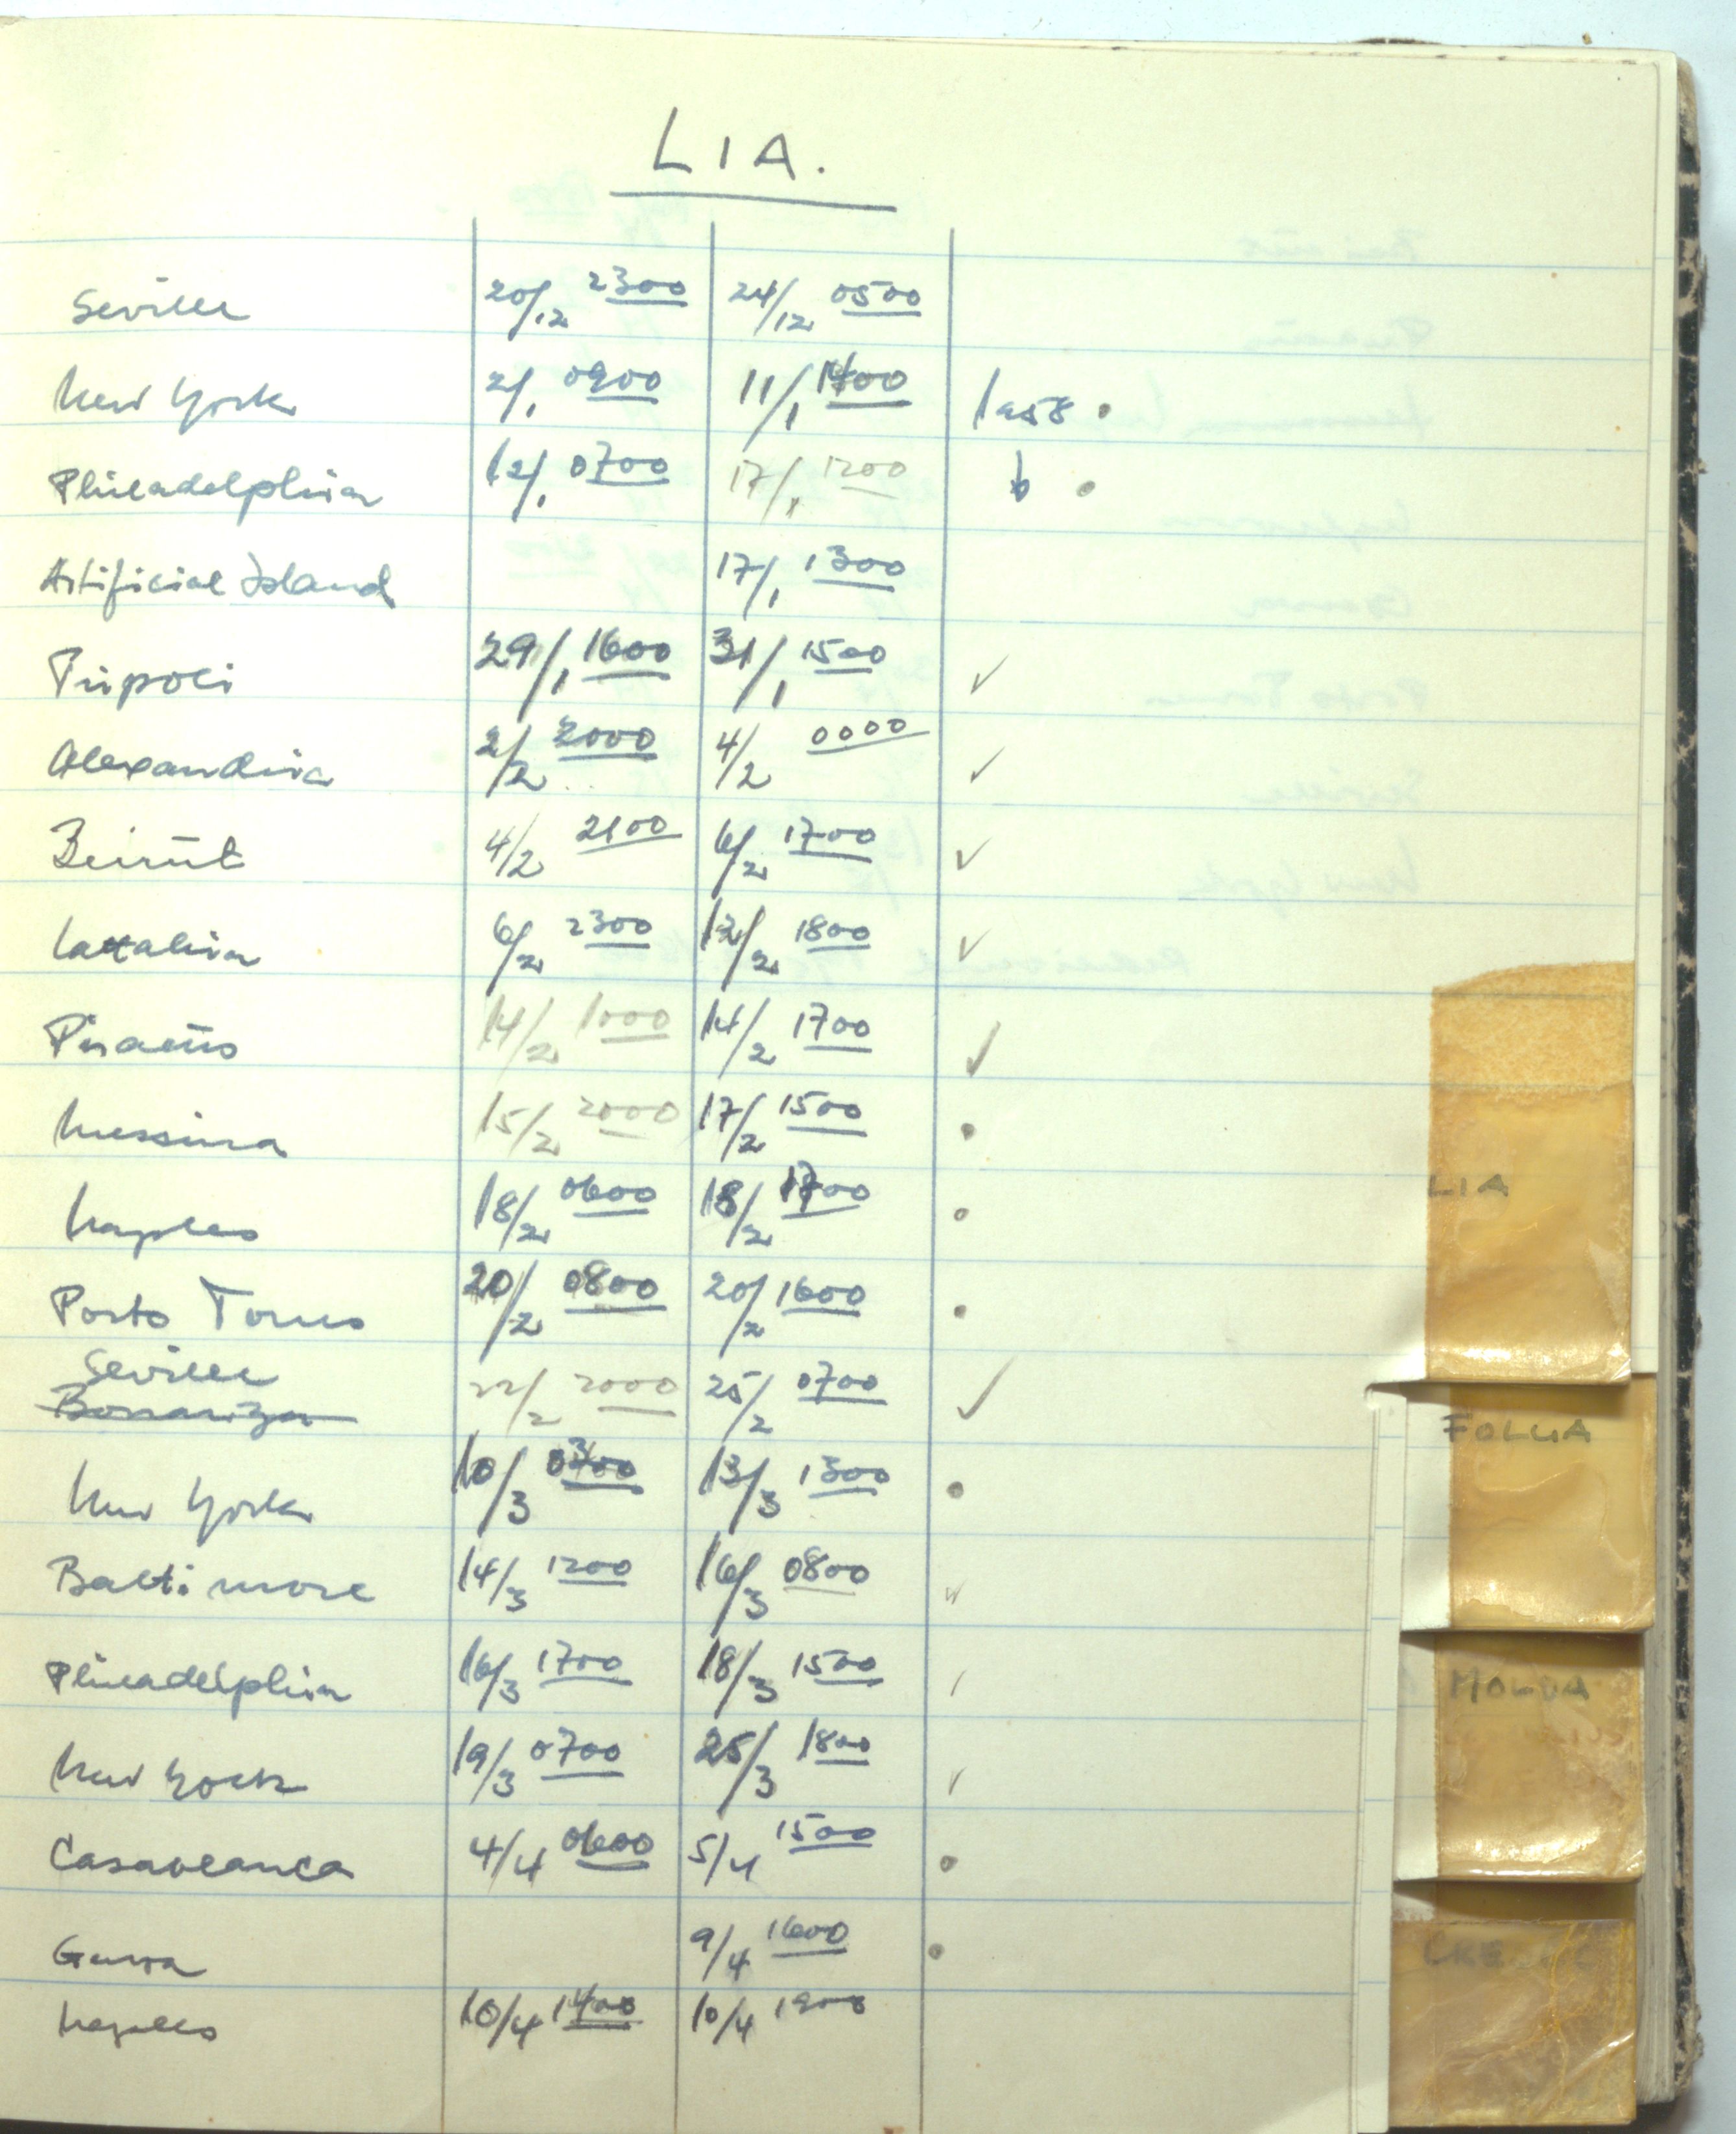 LIA.
Seville 20/12 2300 24/12 0500
New York 2/1 0900 11/1 1400 1958 •
Philadelphia 12/1 0700 17/1 1200 •
Artificial Island 17/1 1300
Tripoli 29/1 1600 31/1 1500 ✓
Alexandria 2/2 2000 4/2 0000 ✓
Beirut 4/2 2100 6/2 1700 ✓
Lattakia 6/2 2300 12/2 1800 ✓
Piraeus 14/2 1000 14/2 1700 ✓
Messina 15/2 2000 17/2 1500 •
Naples 18/2 0600 18/2 1700 •
Porto Torres 20/2 0800 20/2 1600 •
Seville
Bonanza 22/2 2000 25/2 0700 ✓
New York 10/3 13/3 1300 •
Baltimore 14/3 1200 16/3 0800 ✓
Philadelphia 16/3 1700 18/3 1500
New York 19/3 0700 25/3 1800 ✓
Casablanca 4/4 0600 5/4 1500 •
Genoa 9/4 1600 •
Naples 10/4 1400 10/4 1900
LIA
FOLGA
MOLDA